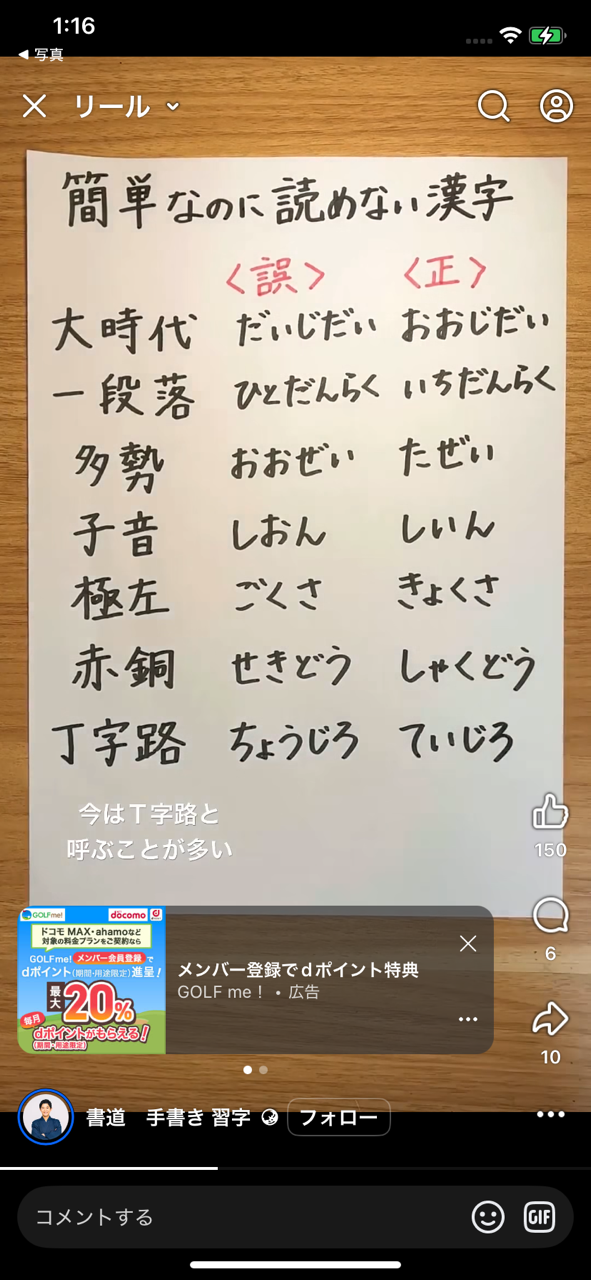 1:16
◀ 写真
リール
簡単なのに読めない漢字
〈誤〉 〈正〉
大時代 だいじだい おおじだい
一段落 ひとだんらく いちだんらく
多勢 おおぜい たぜい
子音 しおん しいん
極左 ごくさ きょくさ
赤銅 せきどう しゃくどう
丁字路 ちょうじろ ていじろ
今はT字路と
呼ぶことが多い
150
GOLFme! docomo
ドコモ MAX・ahamoなど
対象の料金プランをご契約なら
GOLFme! メンバー会員登録で
dポイント(期間・用途限定)進呈!
最大20%
毎月
dポイントがもらえる!
(期間・用途限定)
メンバー登録でdポイント特典
GOLF me! • 広告
6
10
書道 手書き 習字 フォロー
コメントする
GIF